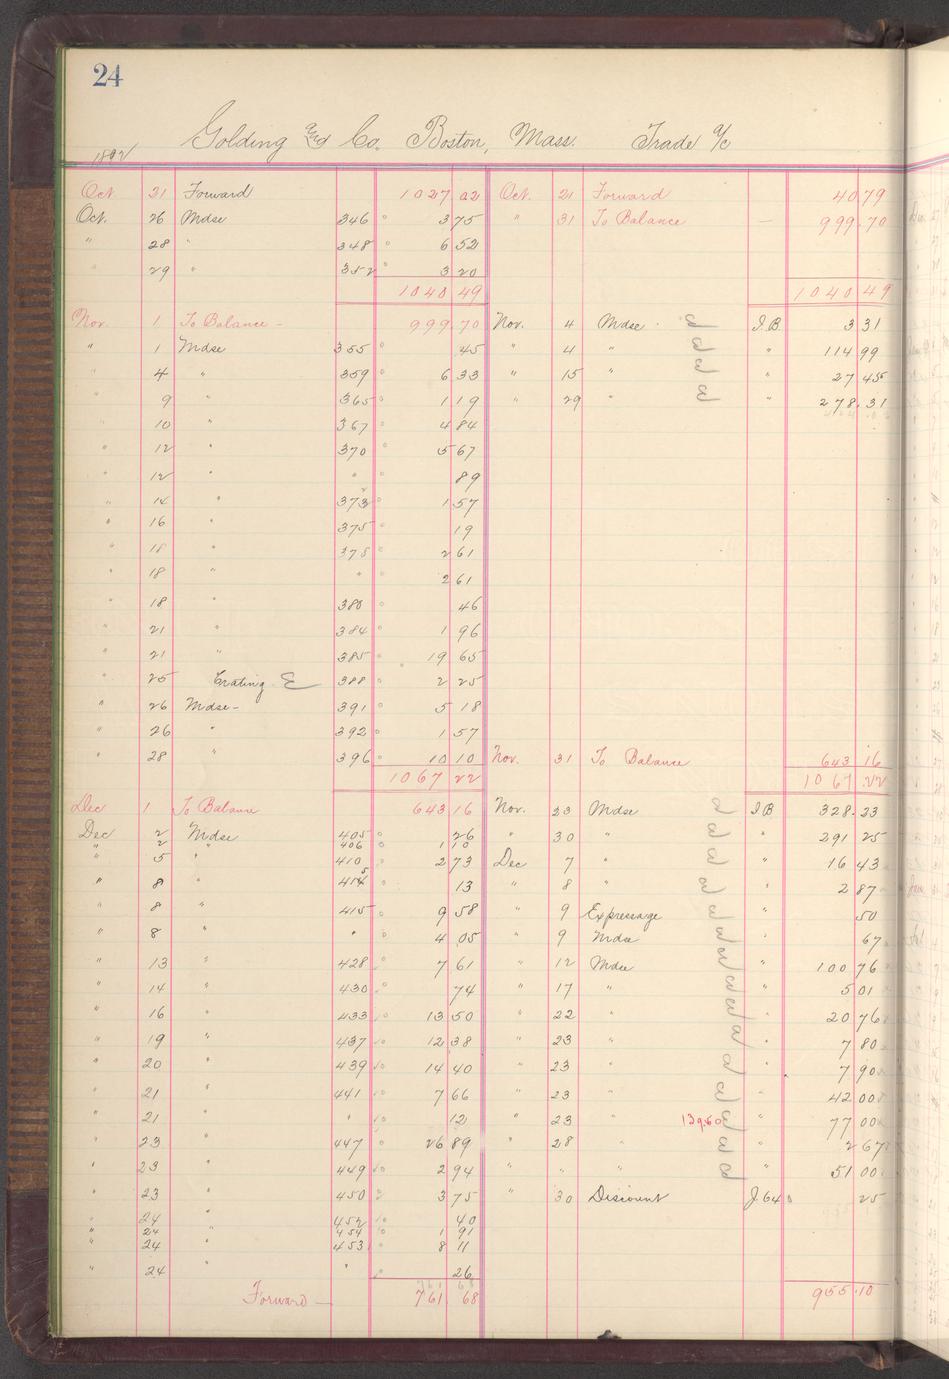 24
1892 Golding and Co. Boston, Mass. Trade a/c
Oct. 21 Forward 1027 02 Oct. 21 Forward 40 79
Oct. 26 Mdse 346 3 75 " 31 To Balance — 999.70
" 28 " 348 6 52
" 29 " 352 3 20
1040 49 1040 49
Nov. 1 To Balance - 999 70 Nov. 4 Mdse I.B. 3 31
" 1 Mdse 355 45 " 4 " " 114 99
" 4 " 359 6 33 " 15 " " 27 45
" 9 " 365 1 19 " 29 " " 278.31
" 10 " 367 4 84
" 12 " 370 5 67
" 12 " " 89
" 14 " 373 1 57
" 16 " 375 19
" 18 " 378 2 61
" 18 " " 2 61
" 18 " 380 46
" 21 " 384 1 96
" 21 " 385 19 65
" 25 Crating 388 2 25
" 26 Mdse - 391 5 18
" 26 " 392 1 57
" 28 " 396 10 10 Nov. 31 To Balance 643 16
1067 22 1067 22
Dec 1 To Balance 643 16 Nov. 23 Mdse I B 328.23
Dec 2 Mdse 405 26 " 30 " " 291 25
" 2 " 406 1 10
" 5 " 410 2 73 Dec 7 " " 16 43
" 8 " 414 13 " 8 " " 2 87
" 8 " 415 9 58 " 9 Expressage " 50
" 8 " 4 05 " 9 Mdse " 67
" 13 " 428 7 61 " 12 Mdse " 100 76
" 14 " 430 74 " 17 " " 5 01
" 16 " 433 13 50 " 22 " " 20 76
" 19 " 437 12 38 " 23 " " 7 80
" 20 " 439 14 40 " 23 " " 7 90
" 21 " 441 7 66 " 23 " " 42 00
" 21 " " 12 " 23 " 139.60 " 77 00
" 23 " 447 26 89 " 28 " " 2 67
" 23 " 449 2 94 " " " " 51 00
" 23 " 450 3 75 " 30 Discount J.64 25
" 24 " 452 40
" 24 " 454 1 91
" 24 " 453 8 11
" 24 " 26
Forward — 761 68 955.10